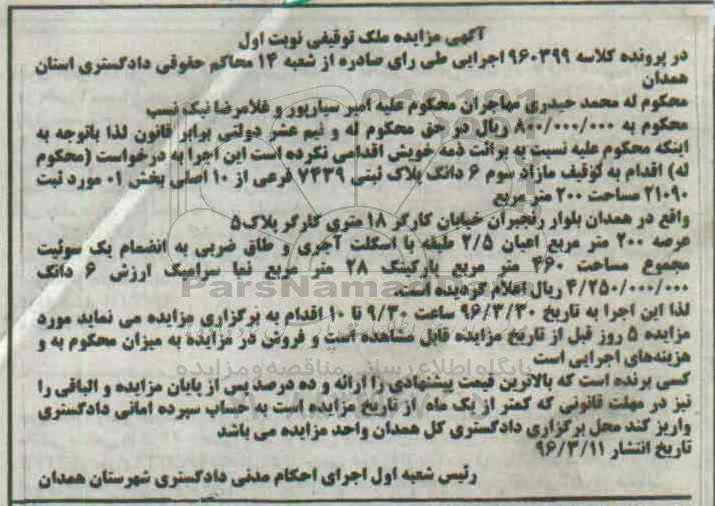 آگهی مزایده ملک توقیفی نوبت اول
در پرونده کلاسه ۹۶۰۳۹۹ اجرایی طی رای صادره از شعبه ۱۴ محاکم حقوقی دادگستری استان
همدان
محکوم له محمد حیدری مهاجران محکوم علیه امیر سیارپور و غلامرضا نیک نسب
محکوم به ۸۰۰/۰۰۰/۰۰۰ ریال در حق محکوم له و نیم عشر دولتی برابر قانون لذا باتوجه به
اینکه محکوم علیه نسبت به برائت ذمه خویش اقدامی نکرده است این اجرا به درخواست (محکوم
له) اقدام به توقیف مازاد سوم ۶ دانگ پلاک ثبتی ۷۴۳۹ فرعی از ۱۰ اصلی بخش ۰۱ مورد ثبت
۲۱۰۹۰ مساحت ۲۰۰ متر مربع
واقع در همدان بلوار رنجبران خیابان کارگر ۱۸ متری کارگر پلاک۵
عرصه ۲۰۰ متر مربع اعیان ۲/۵ طبقه با اسکلت آجری و طاق ضربی به انضمام یک سوئیت
مجموع مساحت ۴۶۰ متر مربع پارکینگ ۲۸ متر مربع نما سرامیک ارزش ۶ دانگ
۴/۲۵۰/۰۰۰/۰۰۰ ریال اعلام گردیده است.
لذا این اجرا به تاریخ ۹۶/۳/۳۰ ساعت ۹/۳۰ تا ۱۰ اقدام به برگزاری مزایده می نماید مورد
مزایده ۵ روز قبل از تاریخ مزایده قابل مشاهده است و فروش در مزایده به میزان محکوم به و
هزینه‌های اجرایی است
کسی برنده است که بالاترین قیمت پیشنهادی را ارائه و ده درصد پس از پایان مزایده و الباقی را
نیز در مهلت قانونی که کمتر از یک ماه از تاریخ مزایده است به حساب سپرده امانی دادگستری
واریز کند محل برگزاری دادگستری کل همدان واحد مزایده می باشد
تاریخ انتشار ۹۶/۳/۱۱
رئیس شعبه اول اجرای احکام مدنی دادگستری شهرستان همدان
ParsNamad
پایگاه اطلاع رسانی مناقصه و مزایده